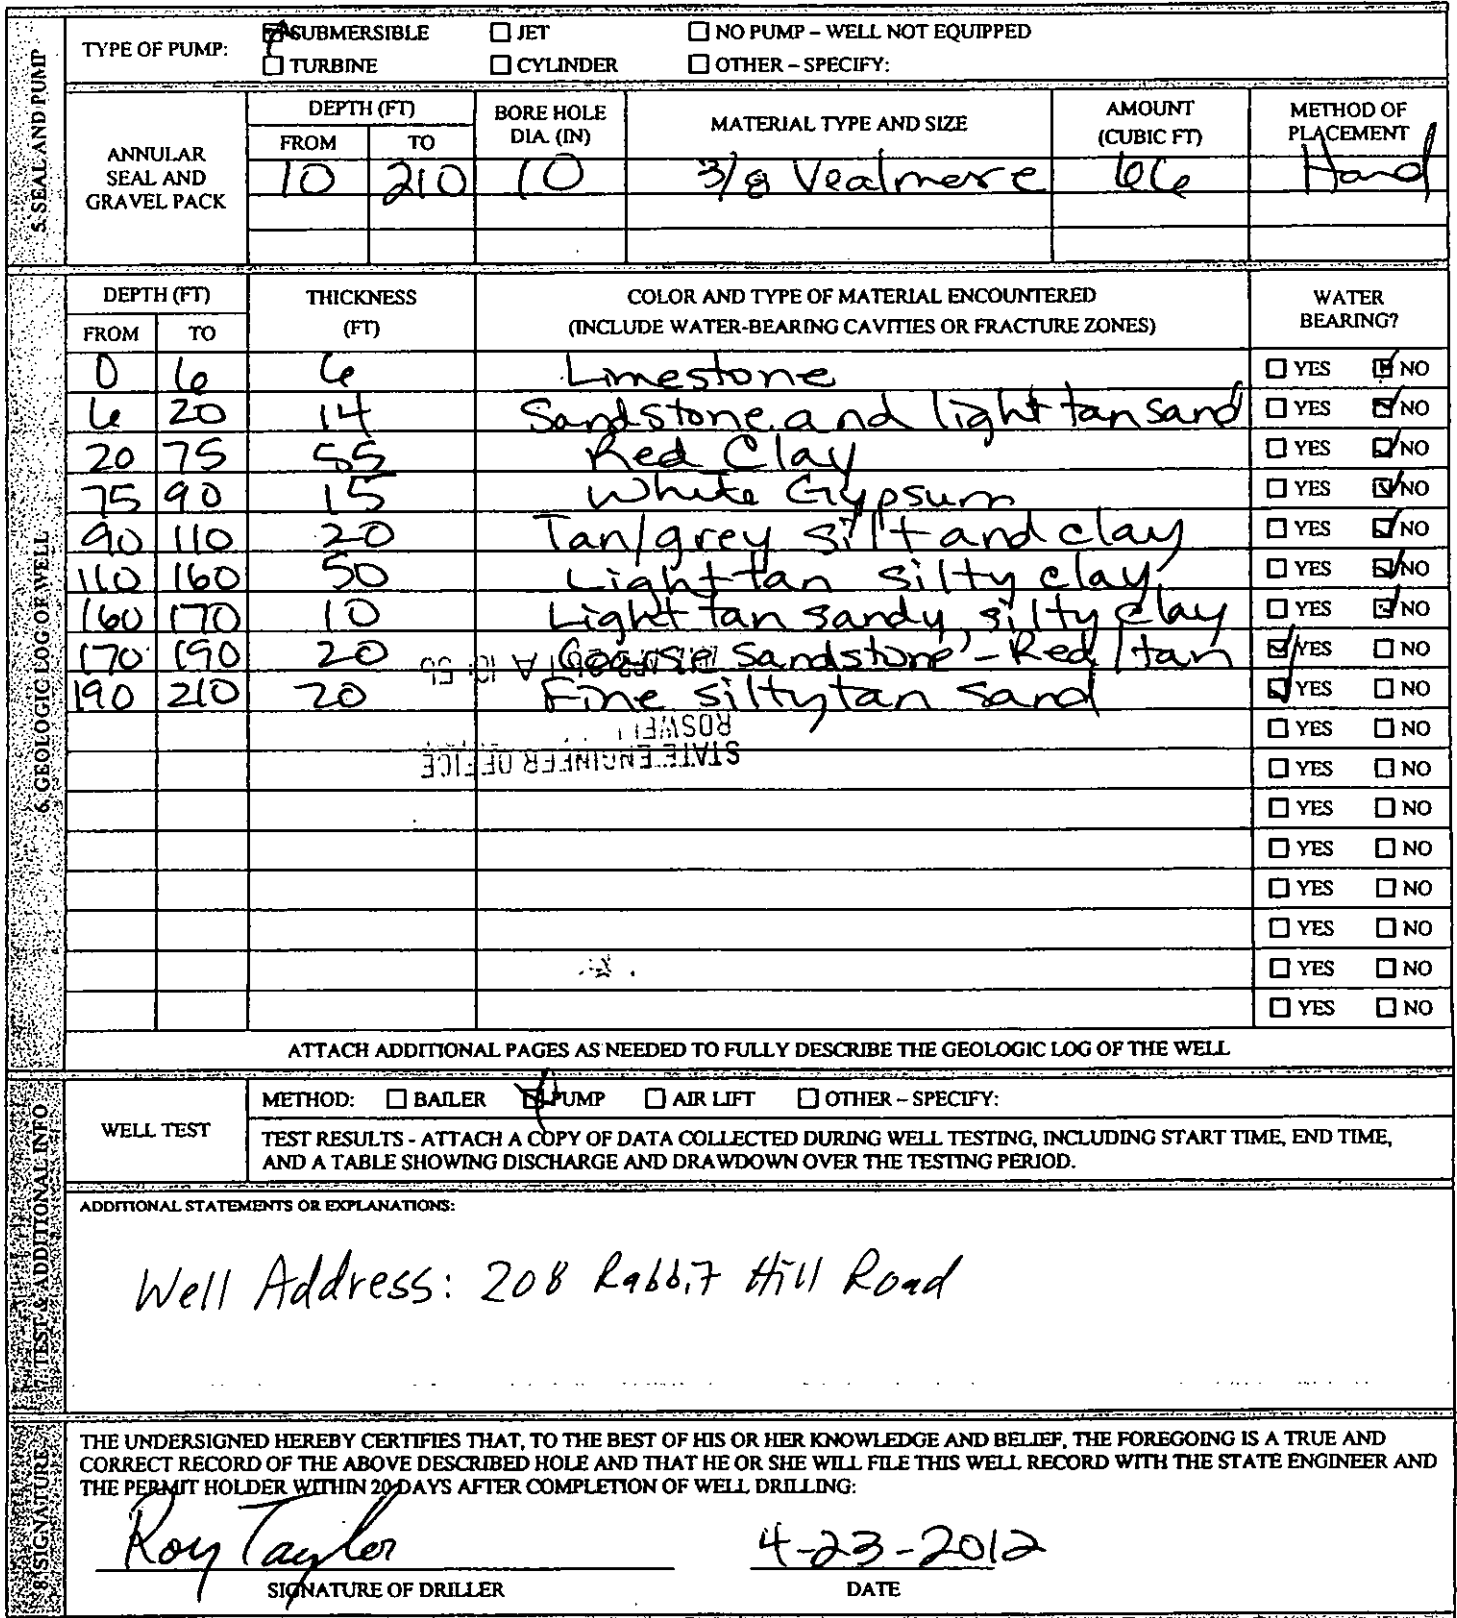 5. SEAL AND PUMP
TYPE OF PUMP: ☒ SUBMERSIBLE ☐ JET ☐ NO PUMP – WELL NOT EQUIPPED
☐ TURBINE ☐ CYLINDER ☐ OTHER – SPECIFY:
ANNULAR SEAL AND GRAVEL PACK
DEPTH (FT) BORE HOLE DIA. (IN) MATERIAL TYPE AND SIZE AMOUNT (CUBIC FT) METHOD OF PLACEMENT
FROM TO
10 210 10 3/8 Vealmere 66 Hand
6. GEOLOGIC LOG OR WELL
DEPTH (FT) THICKNESS (FT) COLOR AND TYPE OF MATERIAL ENCOUNTERED WATER BEARING?
FROM TO (INCLUDE WATER-BEARING CAVITIES OR FRACTURE ZONES)
0 6 6 Limestone ☐ YES ☒ NO
6 20 14 Sandstone and light tan sand ☐ YES ☒ NO
20 75 55 Red Clay ☐ YES ☒ NO
75 90 15 White Gypsum ☐ YES ☒ NO
90 110 20 Tan/grey silt and clay ☐ YES ☒ NO
110 160 50 Light tan silty clay ☐ YES ☒ NO
160 170 10 Light tan sandy, silty clay ☐ YES ☒ NO
170 190 20 Coarse Sandstone - Red/tan ☒ YES ☐ NO
190 210 20 Fine silty tan sand ☒ YES ☐ NO
☐ YES ☐ NO
☐ YES ☐ NO
☐ YES ☐ NO
☐ YES ☐ NO
☐ YES ☐ NO
☐ YES ☐ NO
☐ YES ☐ NO
☐ YES ☐ NO
STATE ENGINEER OFFICE
ROSWELL
ATTACH ADDITIONAL PAGES AS NEEDED TO FULLY DESCRIBE THE GEOLOGIC LOG OF THE WELL
7. TEST & ADDITIONAL INFO
WELL TEST
METHOD: ☐ BAILER ☒ PUMP ☐ AIR LIFT ☐ OTHER – SPECIFY:
TEST RESULTS - ATTACH A COPY OF DATA COLLECTED DURING WELL TESTING, INCLUDING START TIME, END TIME,
AND A TABLE SHOWING DISCHARGE AND DRAWDOWN OVER THE TESTING PERIOD.
ADDITIONAL STATEMENTS OR EXPLANATIONS:
Well Address: 208 Rabbit Hill Road
8. SIGNATURE
THE UNDERSIGNED HEREBY CERTIFIES THAT, TO THE BEST OF HIS OR HER KNOWLEDGE AND BELIEF, THE FOREGOING IS A TRUE AND
CORRECT RECORD OF THE ABOVE DESCRIBED HOLE AND THAT HE OR SHE WILL FILE THIS WELL RECORD WITH THE STATE ENGINEER AND
THE PERMIT HOLDER WITHIN 20 DAYS AFTER COMPLETION OF WELL DRILLING:
Roy Taylor 4-23-2012
SIGNATURE OF DRILLER DATE